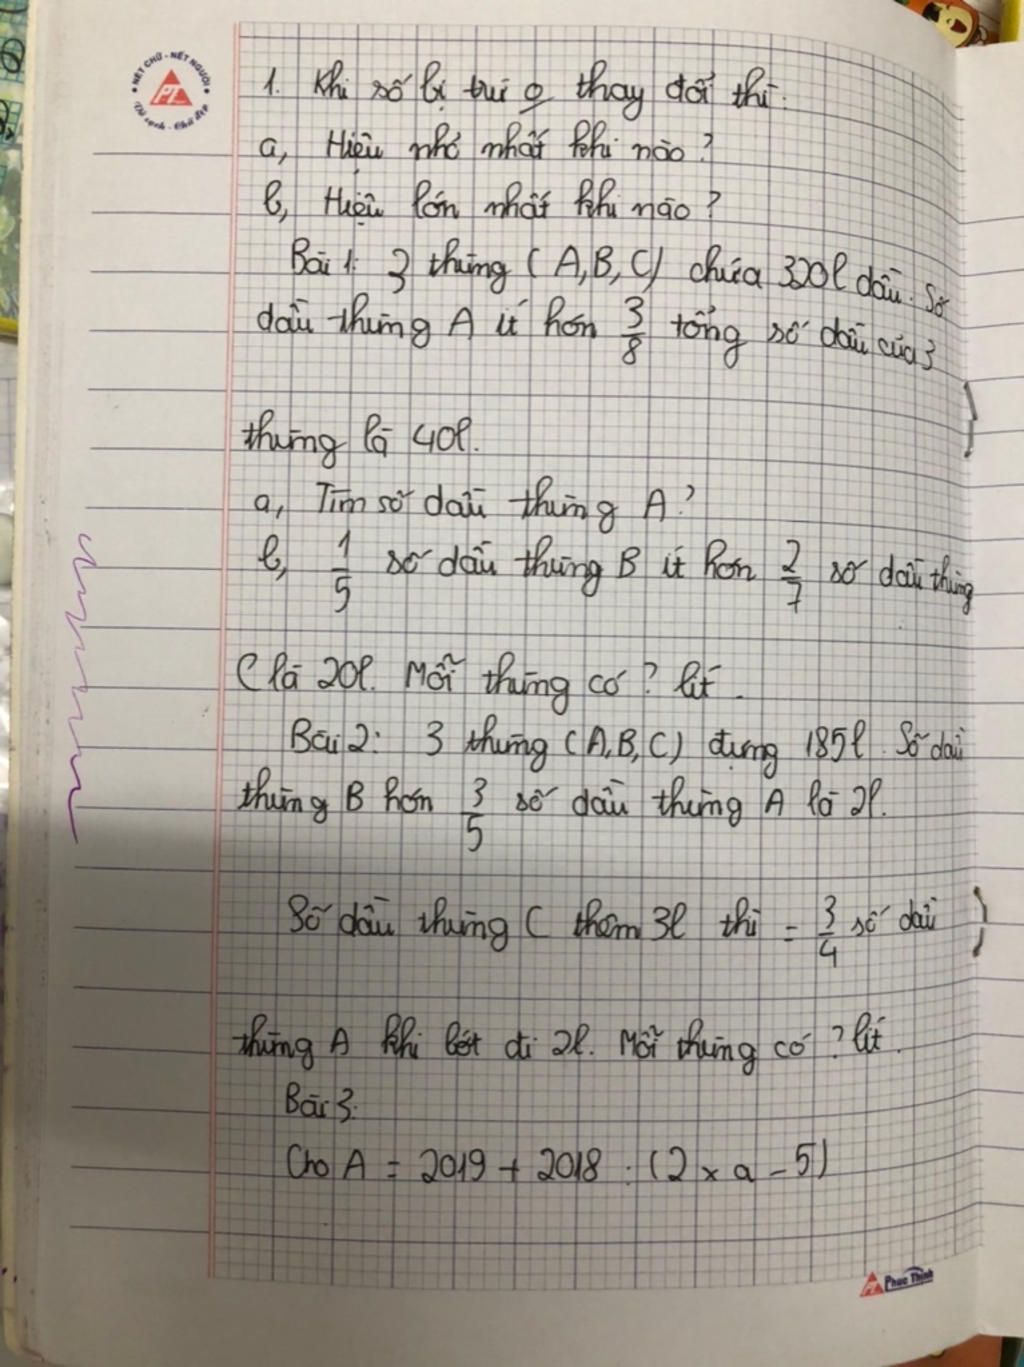 NÉT CHỮ - NẾT NGƯỜI
PT
1. Khi số bị trừ o thay đổi thì:
a, Hiệu nhỏ nhất khi nào?
b, Hiệu lớn nhất khi nào?
Bài 1: 3 thùng (A,B,C) chứa 320l dầu. Số
dầu thùng A ít hơn 3/8 tổng số dầu của 3
thùng là 40l.
a, Tìm số dầu thùng A?
b, 1/5 số dầu thùng B ít hơn 2/7 số dầu thùng
C là 20l. Mỗi thùng có ? lít.
Bài 2: 3 thùng (A,B,C) đựng 185l. Số dầu
thùng B hơn 3/5 số dầu thùng A là 2l.
Số dầu thùng C thêm 3l thì = 3/4 số dầu
thùng A khi bớt đi 2l. Mỗi thùng có ? lít.
Bài 3:
Cho A = 2019 + 2018 : (2 x a - 5)
Phúc Thịnh